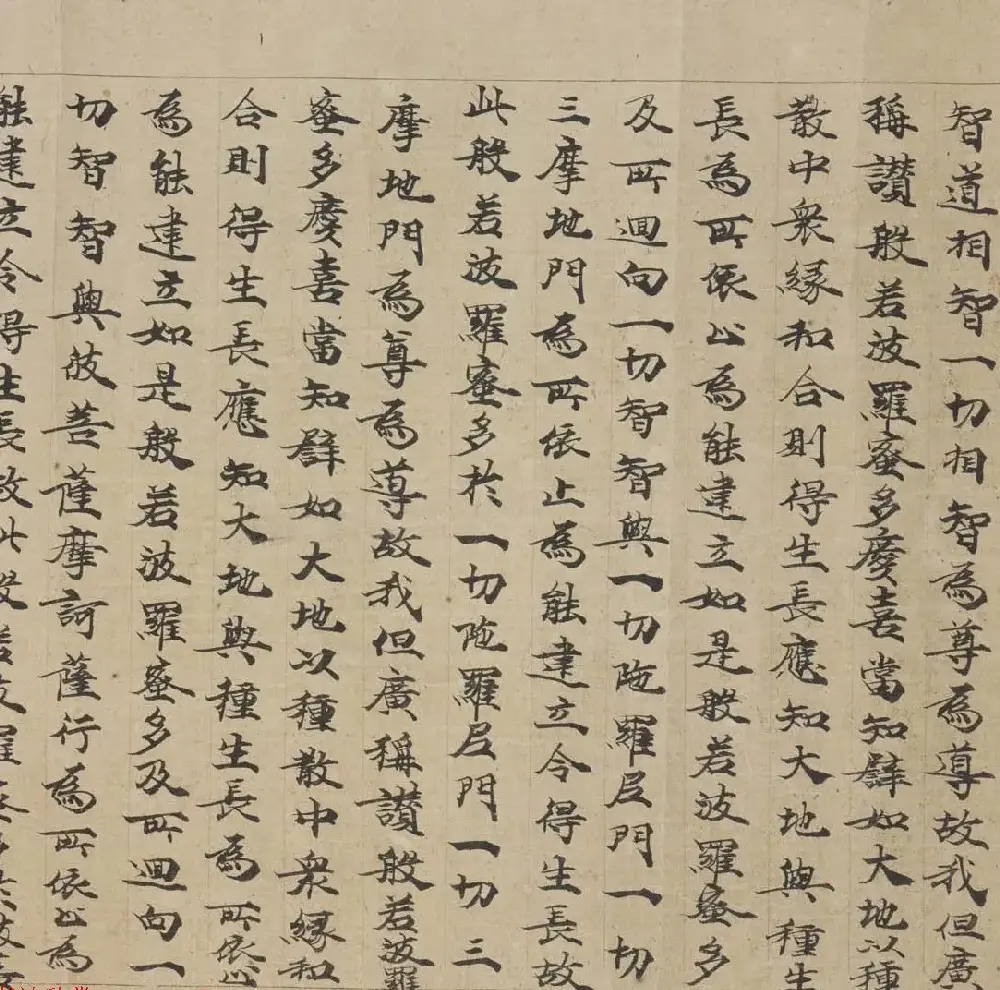 智道相智一切相智為尊為導故我但廣
稱讚般若波羅蜜多慶喜當知譬如大地以種
散中衆緣和合則得生長應知大地與種生
長為所依止為能建立如是般若波羅蜜多
及所迴向一切智智與一切陁羅尼門一切
三摩地門為所依止為能建立令得生長故
此般若波羅蜜多於一切陁羅尼門一切三
摩地門為尊為導故我但廣稱讚般若波羅
蜜多慶喜當知譬如大地以種散中衆緣和
合則得生長應知大地與種生長為所依止
為能建立如是般若波羅蜜多及所迴向一
切智智與彼菩薩摩訶薩行為所依止為
能建立令得生長故此般若波羅蜜多